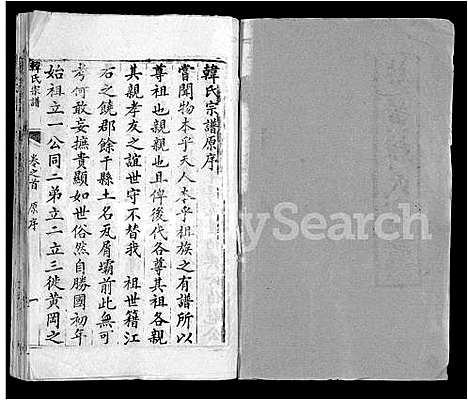 韓氏宗譜原序
嘗聞物本乎天人本乎祖族之有譜所以
尊祖也親親也且俾後代各尊其祖各親
其親孝友之誼世守不替我 祖世籍江
右之饒郡餘干縣土名瓦屑壩前此無可
考何敢妄摭貴顯如世俗然自勝國初年
始祖立一公同二弟立二立三徙黄岡之
韓氏宗譜
卷之首 原序
一
Search